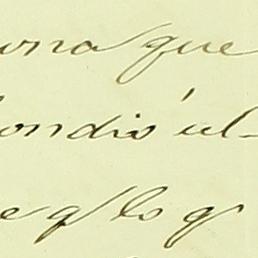 una que
ondió ul-
e q' lo q'